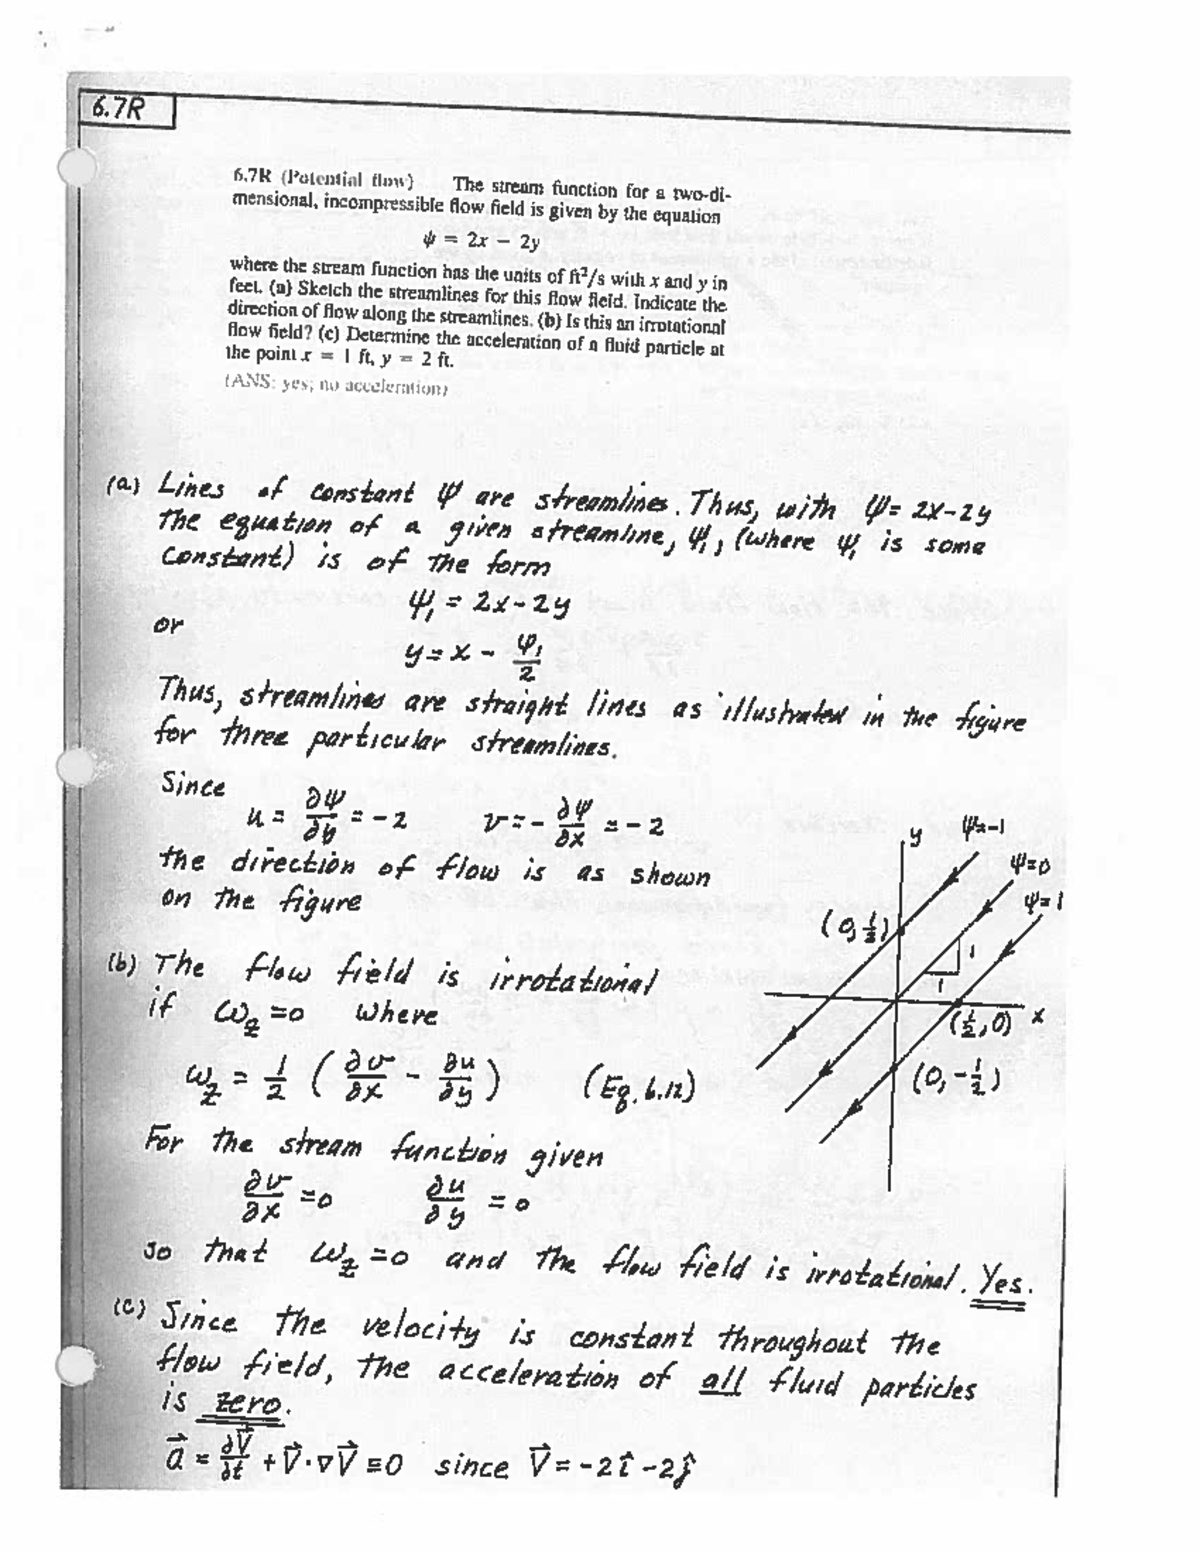 6.7R
6.7R (Potential flow) The stream function for a two-di-
mensional, incompressible flow field is given by the equation
ψ = 2x − 2y
where the stream function has the units of ft²/s with x and y in
feet. (a) Sketch the streamlines for this flow field. Indicate the
direction of flow along the streamlines. (b) Is this an irrotational
flow field? (c) Determine the acceleration of a fluid particle at
the point x = 1 ft, y = 2 ft.
(ANS: yes; no acceleration)
(a) Lines of constant ψ are streamlines. Thus, with ψ = 2x-2y
the equation of a given streamline, ψ₁, (where ψ₁ is some
constant) is of the form
ψ₁ = 2x-2y
or
y = x - ψ₁/2
Thus, streamlines are straight lines as illustrated in the figure
for three particular streamlines.
Since
u = ∂ψ/∂y = -2 v = - ∂ψ/∂x = -2
the direction of flow is as shown
on the figure
y
ψ=-1
ψ=0
ψ=1
(0, 1/2)
1
1
(1/2, 0) x
(0, -1/2)
(b) The flow field is irrotational
if ω_z = 0 where
ω_z = 1/2 ( ∂v/∂x - ∂u/∂y ) (Eq. 6.12)
For the stream function given
∂v/∂x = 0 ∂u/∂y = 0
so that ω_z = 0 and the flow field is irrotational. Yes.
(c) Since the velocity is constant throughout the
flow field, the acceleration of all fluid particles
is zero.
a⃗ = ∂V⃗/∂t + V⃗·∇V⃗ ≡ 0 since V⃗ = -2î -2ĵ